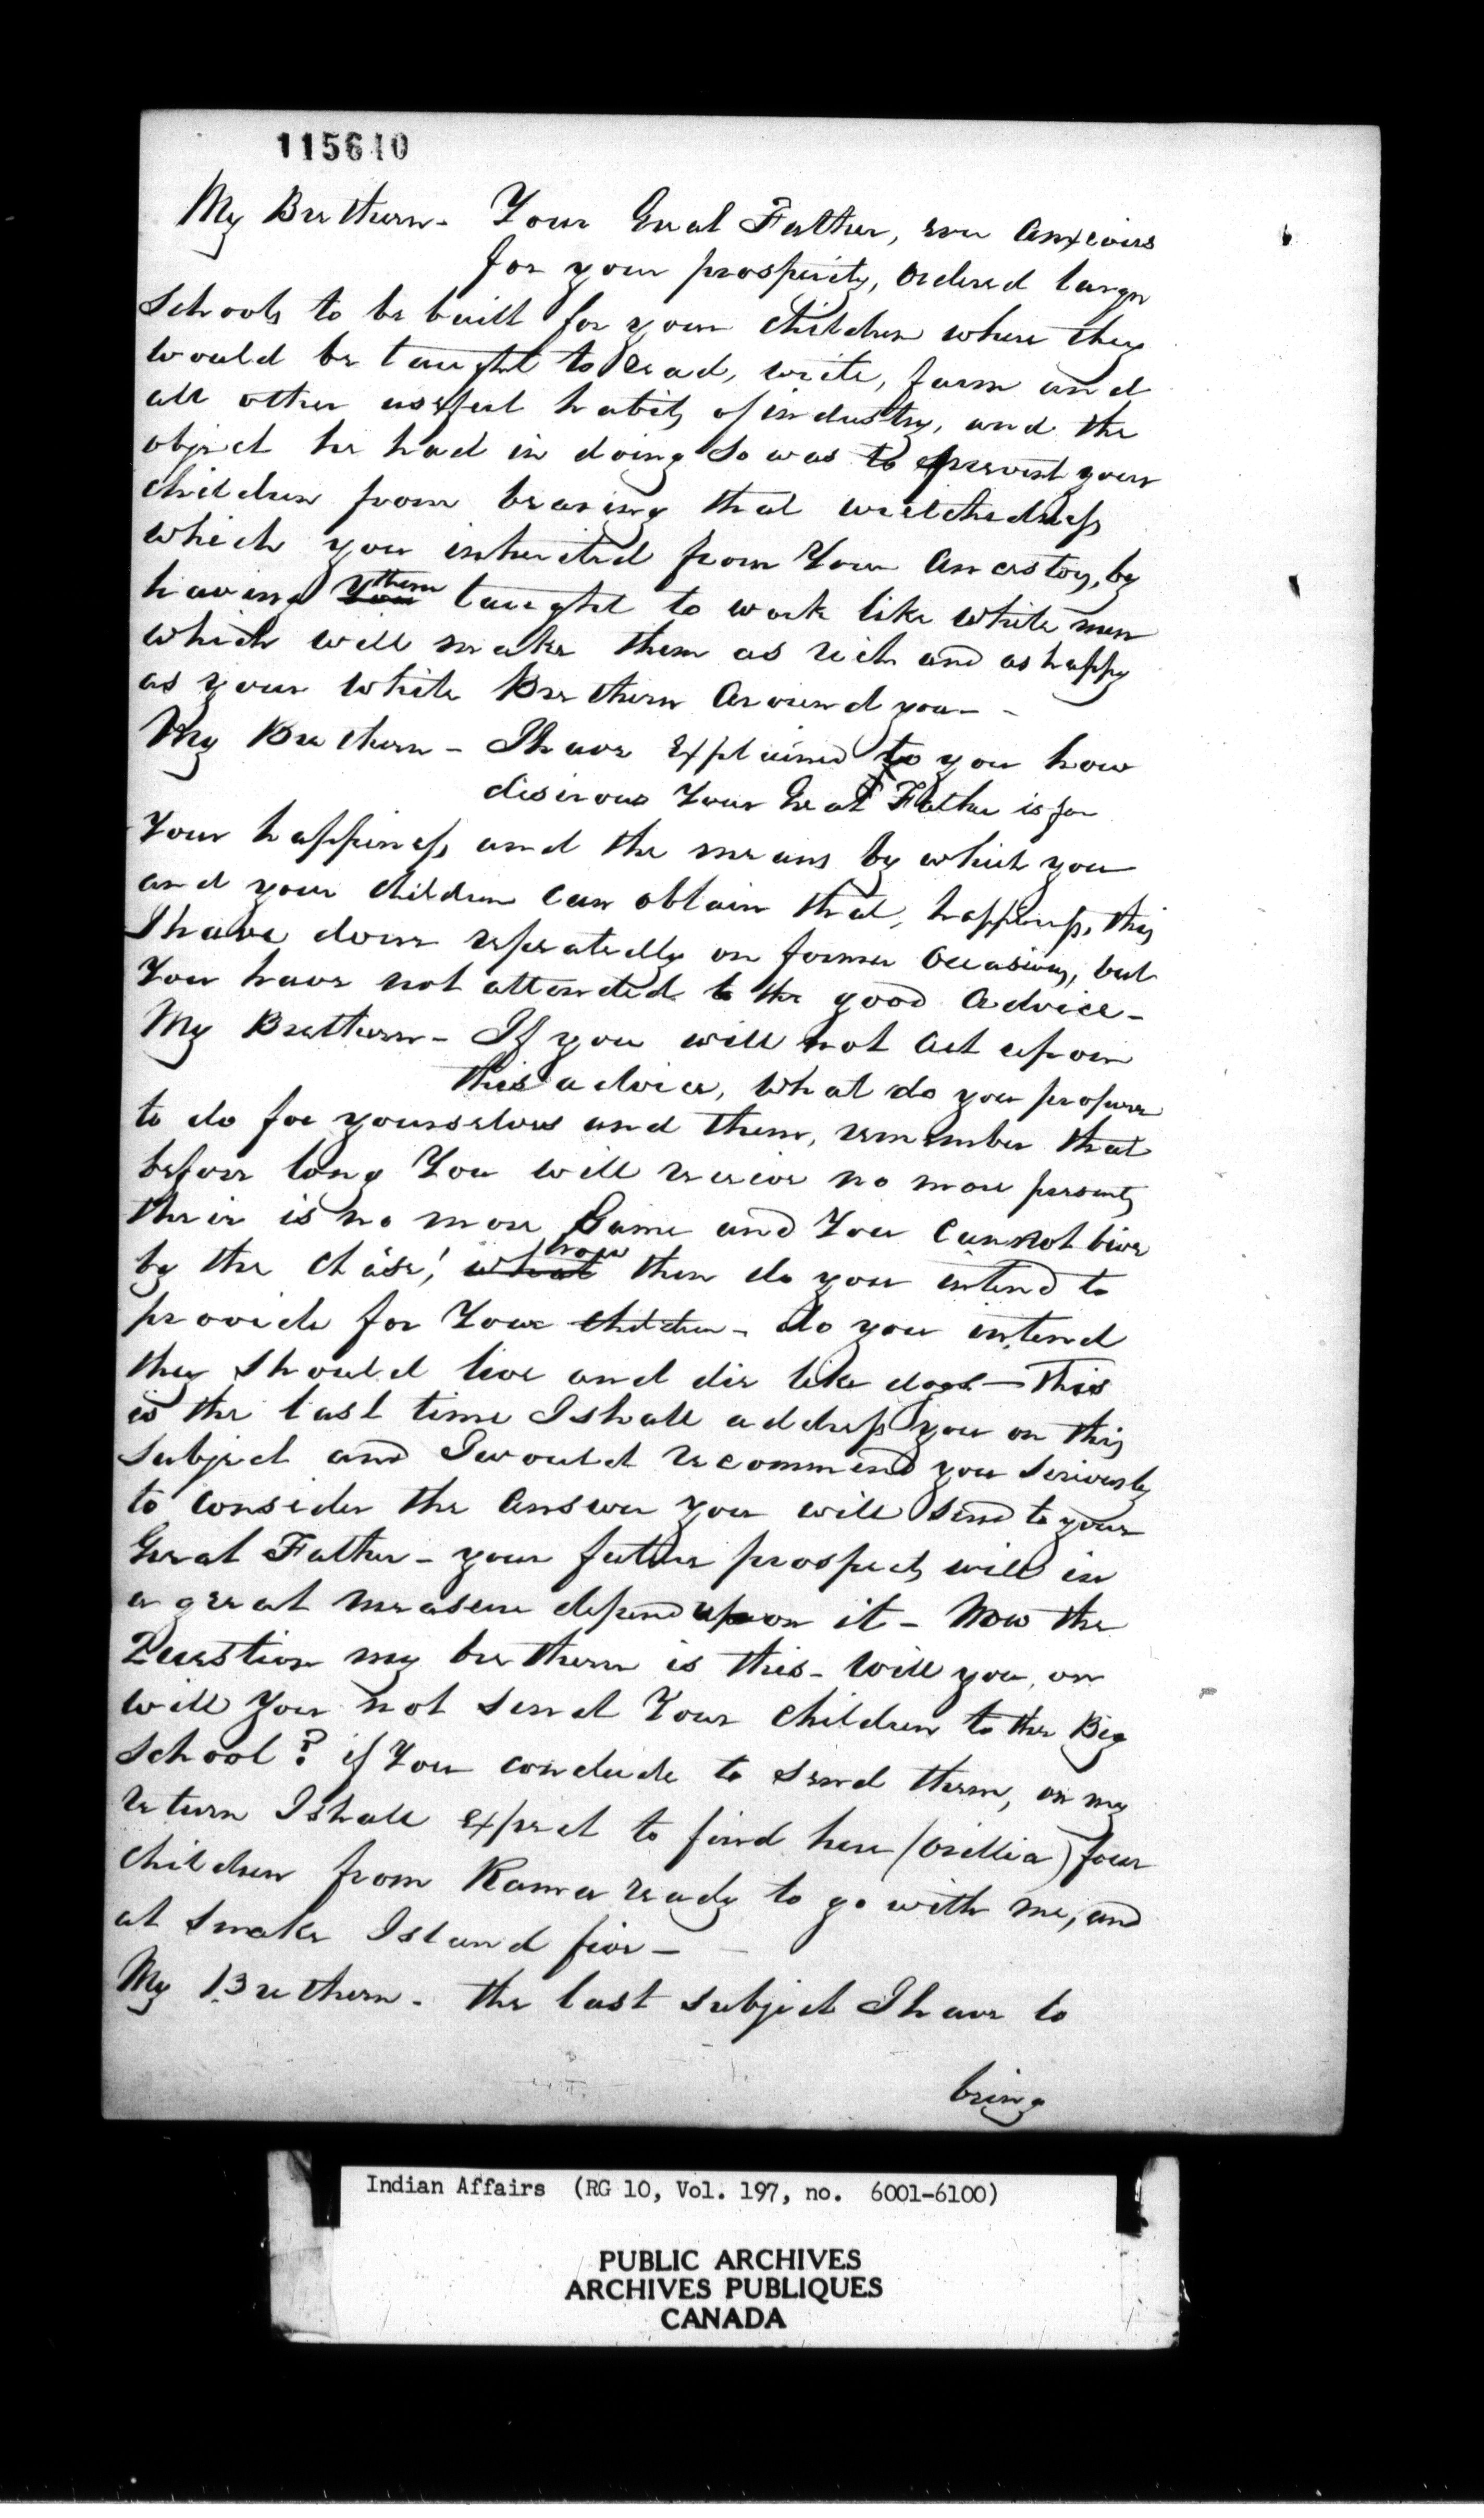 115610
My Brethern - Your Great Father, ever Anxious
for your prosperity, Ordered large
Schools to be built for your Children where they
would be taught to read, write, farm and
all other useful habits of industry, and the
object he had in doing So was to prevent your
Children from bearing that wretchedness
which you inherited from Your Ancestors, by
having You them taught to work like White men
which will make them as rich and as happy
as your White Brethern Around you -
My Brethern - I have Explained to you how
desirous Your Great Father is for
Your happiness and the means by which you
and your Children Can obtain that, happiness, this
I have done repeatedly on former Occasions, but
You have not attended to the good Advice -
My Brethern - If you will not Act upon
this advice, What do you propose
to do for yourselves and them, remember that
before long You will receive no more presents
their is no more Game and You Cannot live
by the Chase! what how then do you intend to
provide for Your Children - do you intend
they Should live and die like dogs - This
is the last time I shall address you on this
Subject and I would recommend you Seriously
to Consider the Answer you will Send to your
Great Father - your future prospects will in
a great measure depend upon it - Now the
Question my brethern is this - Will you, or
will You not Send Your Children to the Big
School? if You conclude to Send them, on my
return I shall Expect to find here (Orillia) four
Children from Rama ready to go with me, and
at Snake Island five -
My Brethern - the last Subject I have to
bring
Indian Affairs (RG 10, Vol. 197, no. 6001-6100)
PUBLIC ARCHIVES
ARCHIVES PUBLIQUES
CANADA